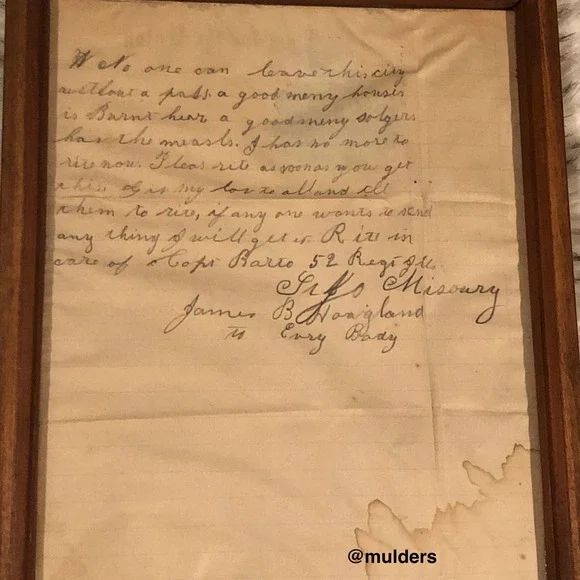 No one can leave this city
without a pass. a good meny houses
is Burnt hear a good meny solgers
has the measls. I has no more to
rite now. Pleas rite as soon as you get
this is my lov to all and tell
them to rite, if any one wants to send
any thing I will get it Rite in
care of Capt Barto 52 Regt Ills
Misoury
James B Hoagland
to Evry Body
@mulders